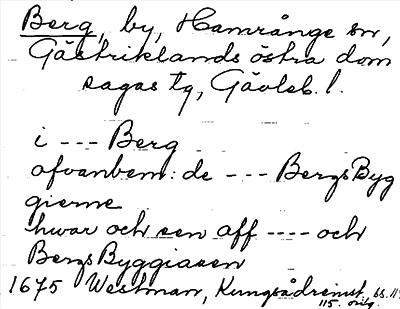 Berg, by, Hamrånge sn,
Gästriklands östra dom
sagas tg, Gävleb. l.
i --- Berg
ofvanbem: de --- BergsByg
gierne
hwar och sen aff ---- och
BergsByggiaren
1675 Westman, Kungsådreinst. bl. 114
115. orig.